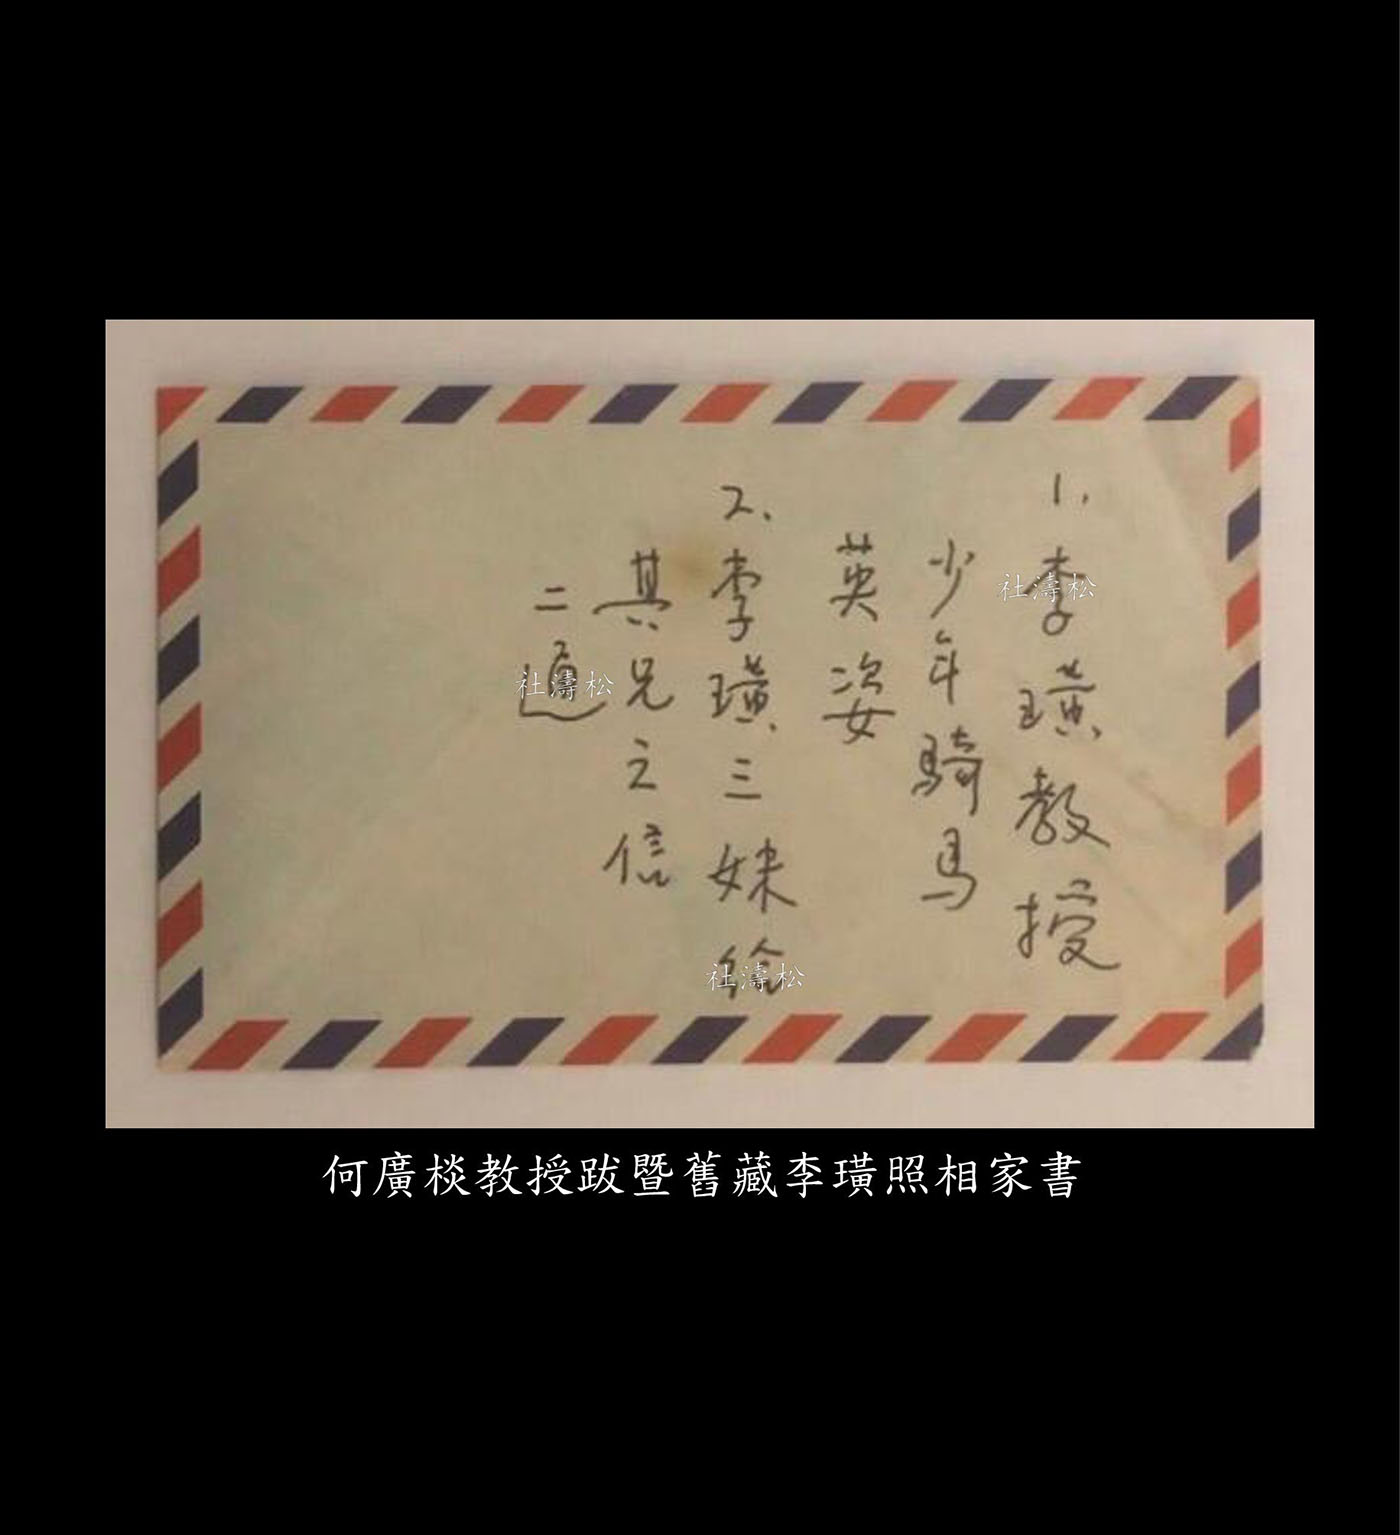 1. 李璜教授
少年騎馬
英姿
2. 李璜三妹給
其兄之信
二通
社濤松
社濤松
社濤松
何廣棪教授跋暨舊藏李璜照相家書